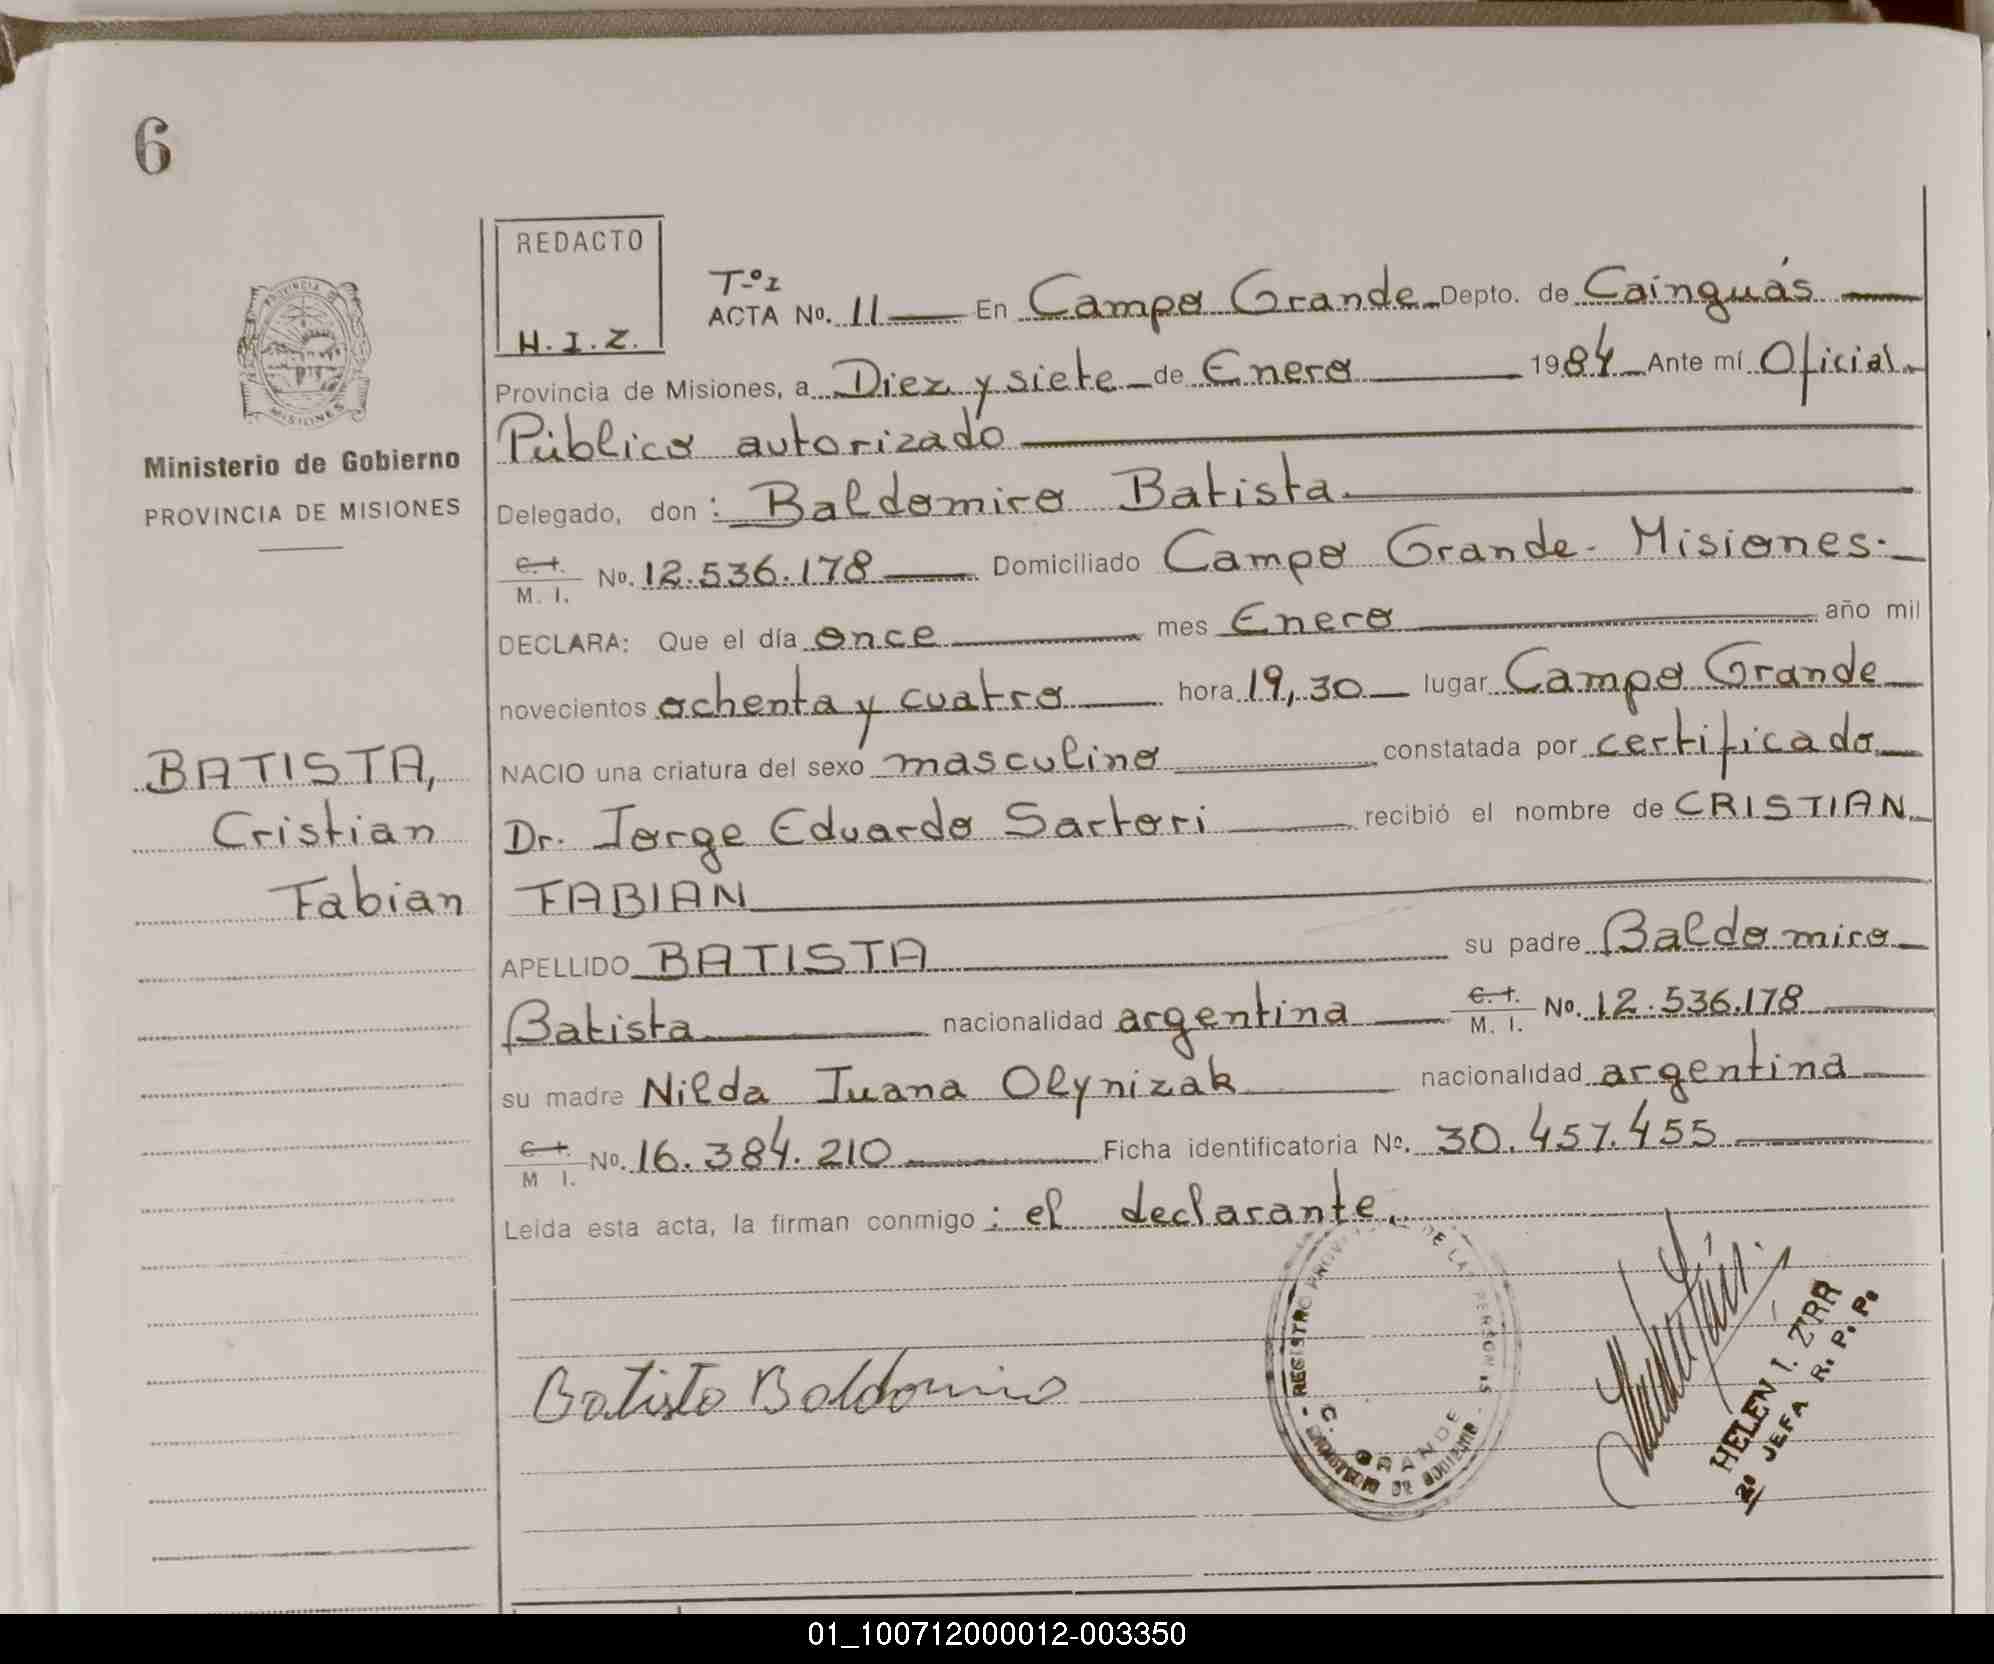 6
REDACTO
H. I. Z.
PROVINCIA DE
MISIONES
Ministerio de Gobierno
PROVINCIA DE MISIONES
T-º I
ACTA Nº. 11 En Campo Grande Depto. de Cainguás
Provincia de Misiones, a Diez y siete de Enero 1984 Ante mí Oficial
Público autorizado
Delegado, don : Baldomiro Batista
C. I. / M. I. Nº. 12.536.178 Domiciliado Campo Grande - Misiones.
DECLARA: Que el día once mes Enero año mil
novecientos ochenta y cuatro hora 19,30 lugar Campo Grande
NACIO una criatura del sexo masculino constatada por certificado
Dr. Jorge Eduardo Sartori recibió el nombre de CRISTIAN
FABIAN
APELLIDO BATISTA su padre Baldomiro
Batista nacionalidad argentina C. I. / M. I. Nº. 12.536.178
su madre Nilda Juana Olynizak nacionalidad argentina
C. I. / M I. Nº. 16.384.210 Ficha identificatoria Nº. 30.457.455
Leida esta acta, la firman conmigo : el declarante.
BATISTA,
Cristian
Fabian
Batista Baldomiro
REGISTRO PROV DE LAS PERSONAS
C. GRANDE
HELEN I. ZIRR
2º JEFA R. P. Pº
01_100712000012-003350